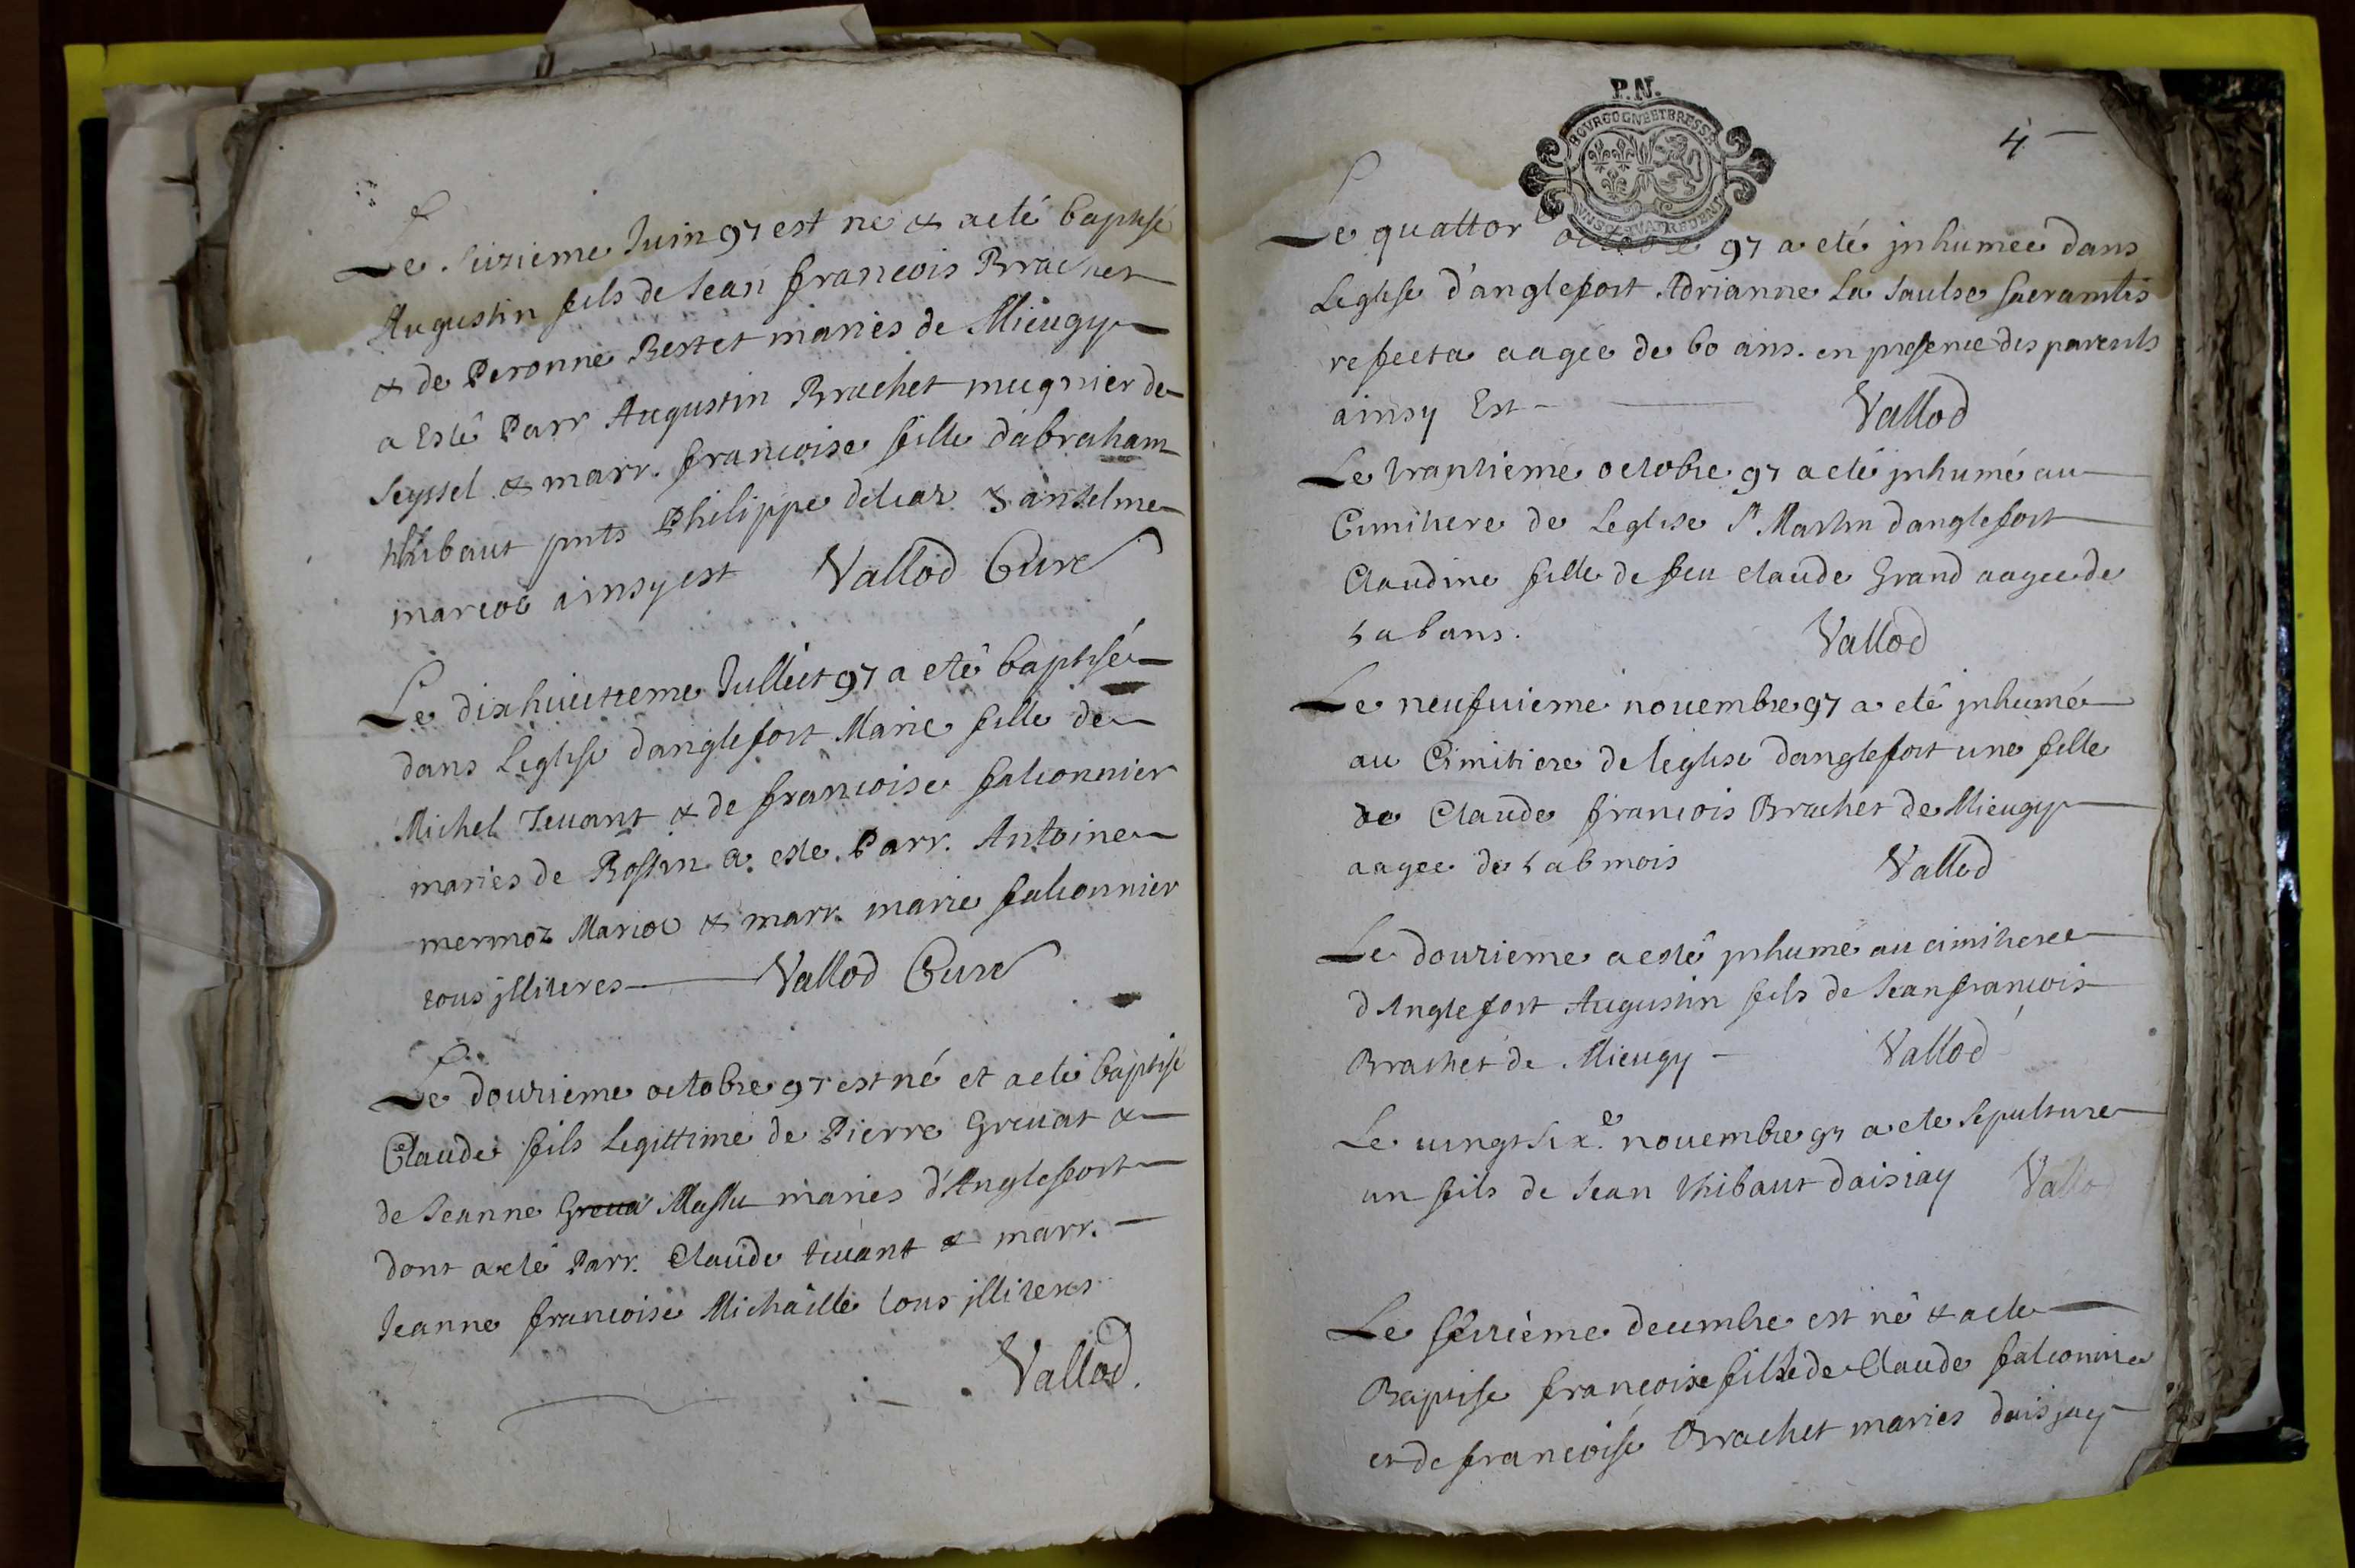 Le seizieme Juin 97 est né & a eté baptisé
Augustin fils de Jean françois Brachet
& de Peronne Bertet mariés de Mieugy
a Esté Parr Augustin Brachet mugnier de
Seyssel & marr. françoise fille d'abraham
thibaut pnts Philippe & antelme
marcoz ainsy est Vallod Curé
Le dixhuictieme Jullict 97 a eté baptisée
dans Leglise danglefort Marie fille de
Michel Teuant & de francoise falconnier
mariés de a esté Parr. Antoine
mermoz & marr. marie falconnier
tous jlliteres Vallod Curé
Le douzieme octobre 97 est né et a eté baptisé
Claude fils Legittime de Pierre Greuat &
de Jeanne Massu mariés d'Anglefort
dont a eté Parr. Claude teuant & marr.
Jeanne francoise Michaille tous jlliteres
Vallod.
P.N.
BOURGOGNE ET BRESSE
4
Le quattor octobre 97 a eté jnhumee dans
Leglise d'anglefort Adrianne La Saulse sacramtis
refecta aagée de 60 ans. en presence des parents
ainsy Est Vallod
Le trantieme octobre 97 a eté jnhumé au
Cimitiere de Leglise St Martin danglefort
Claudine fille de feu claude Grand aagee de
5 a 6 ans. Vallod
Le neufuieme nouembre 97 a eté jnhumé
au Cimitiere de leglise danglefort une fille
de Claude françois Brachet de Mieugy
aagee de 5 a 6 mois Vallod
Le douzieme a esté jnhumé au cimitiere
d'Anglefort Augustin fils de Jean françois
Brachet de Mieugy Vallod
Le uingt six.e nouembre 97 a ete sepulturé
un fils de Jean thibaut daisiay Vallod
Le seizième decembre est né & a eté
Baptisé françoise fille de Claude falconnier
et de françoise Brachet mariés